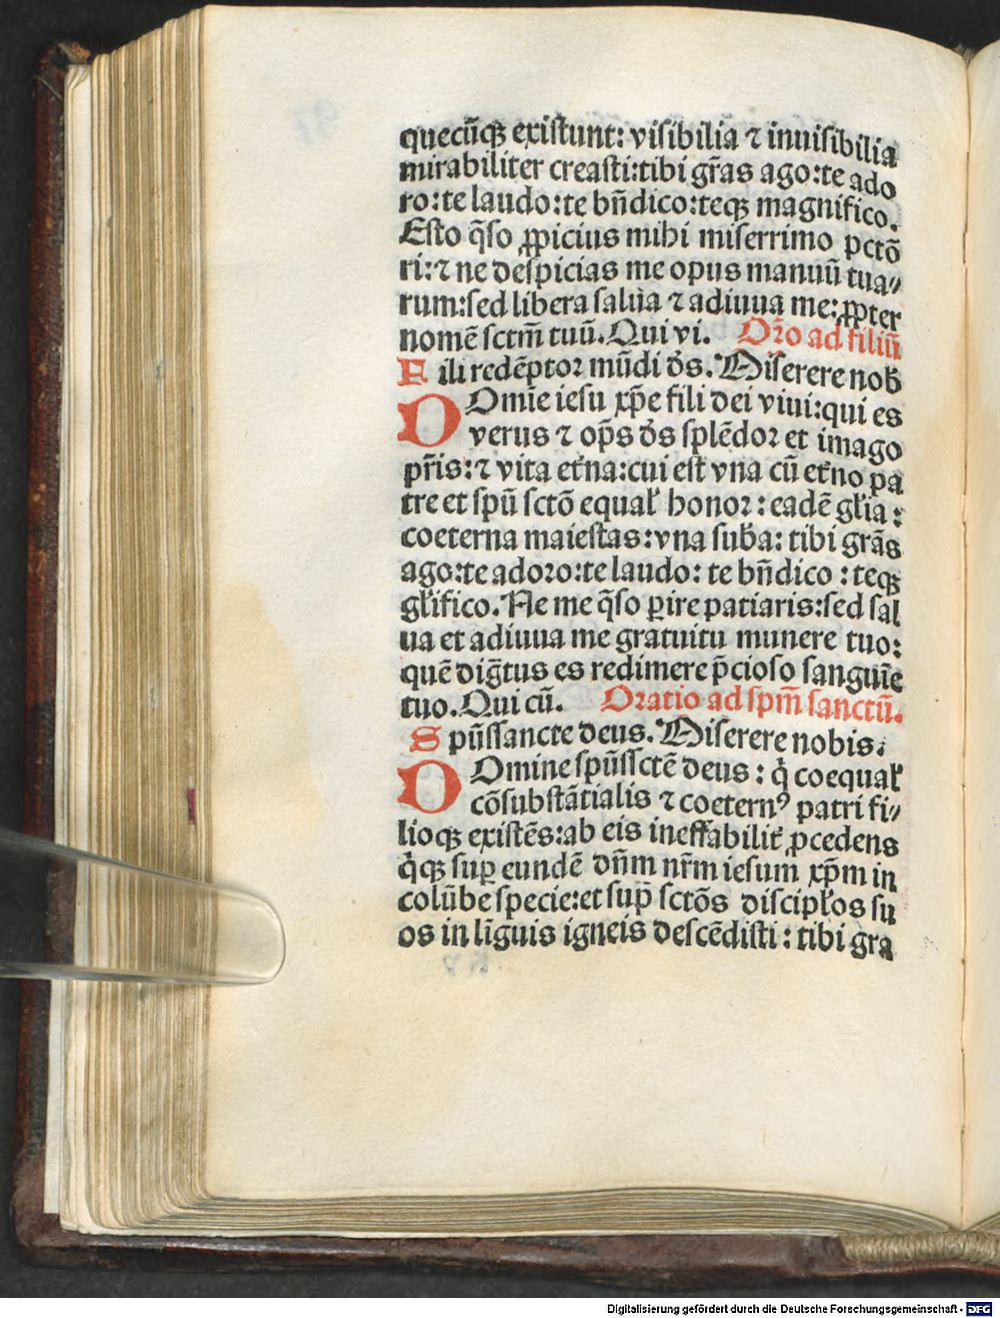 quecū̃qꝫ existunt: visibilia ⁊ inuisibilia
mirabiliter creasti:tibi gr̃as ago:te ado
ro:te laudo:te bñdico:teqꝫ magnifico.
Esto q̃so ꝓpicius mihi miserrimo pctõ
ri:⁊ ne despicias me opus manuū tua⸗
rum:sed libera salua ⁊ adiuua me:ꝓpter
nomē sctm̃ tuū. Qui vi. Or̃o ad filiū
Fili redēptoꝛ mūdi de᷒s. Miserere nob̃
DOmie iesu xp̃e fili dei viui:qui es
verus ⁊ op̃s de᷒s splēdoꝛ et imago
pr̃is:⁊ vita et̃na:cui est vna cū et̃no pa
tre et spũ sctõ equał honoꝛ: eadē gľia:
coeterna maiestas:vna sub̃a: tibi gr̃as
ago:te adoꝛo:te laudo: te bñdico: teqꝫ
gľifico. Ne me q̃so ꝑire patiaris:sed sal
ua et adiuua me gratuitu munere tuo:
quē dig̃tus es redimere p̃cioso sanguīe
tuo. Qui cū. Oꝛatio ad spm̃ sanctū.
Spũssancte deus. Miserere nobis.
DOmine spũssctē deus: q̇ coequał
cōsubstātialis ⁊ coeternꝰ patri fi⸗
lioqꝫ existēs:ab eis ineffabilit̃ ꝓcedens
q̇qꝫ suꝑ eundē dñm nr̃m iesum xp̃m in
colūbe specie:et sup̃ sctõs discipłos su
os in līguis igneis descēdisti: tibi gra
Digitalisierung gefördert durch die Deutsche Forschungsgemeinschaft - DFG